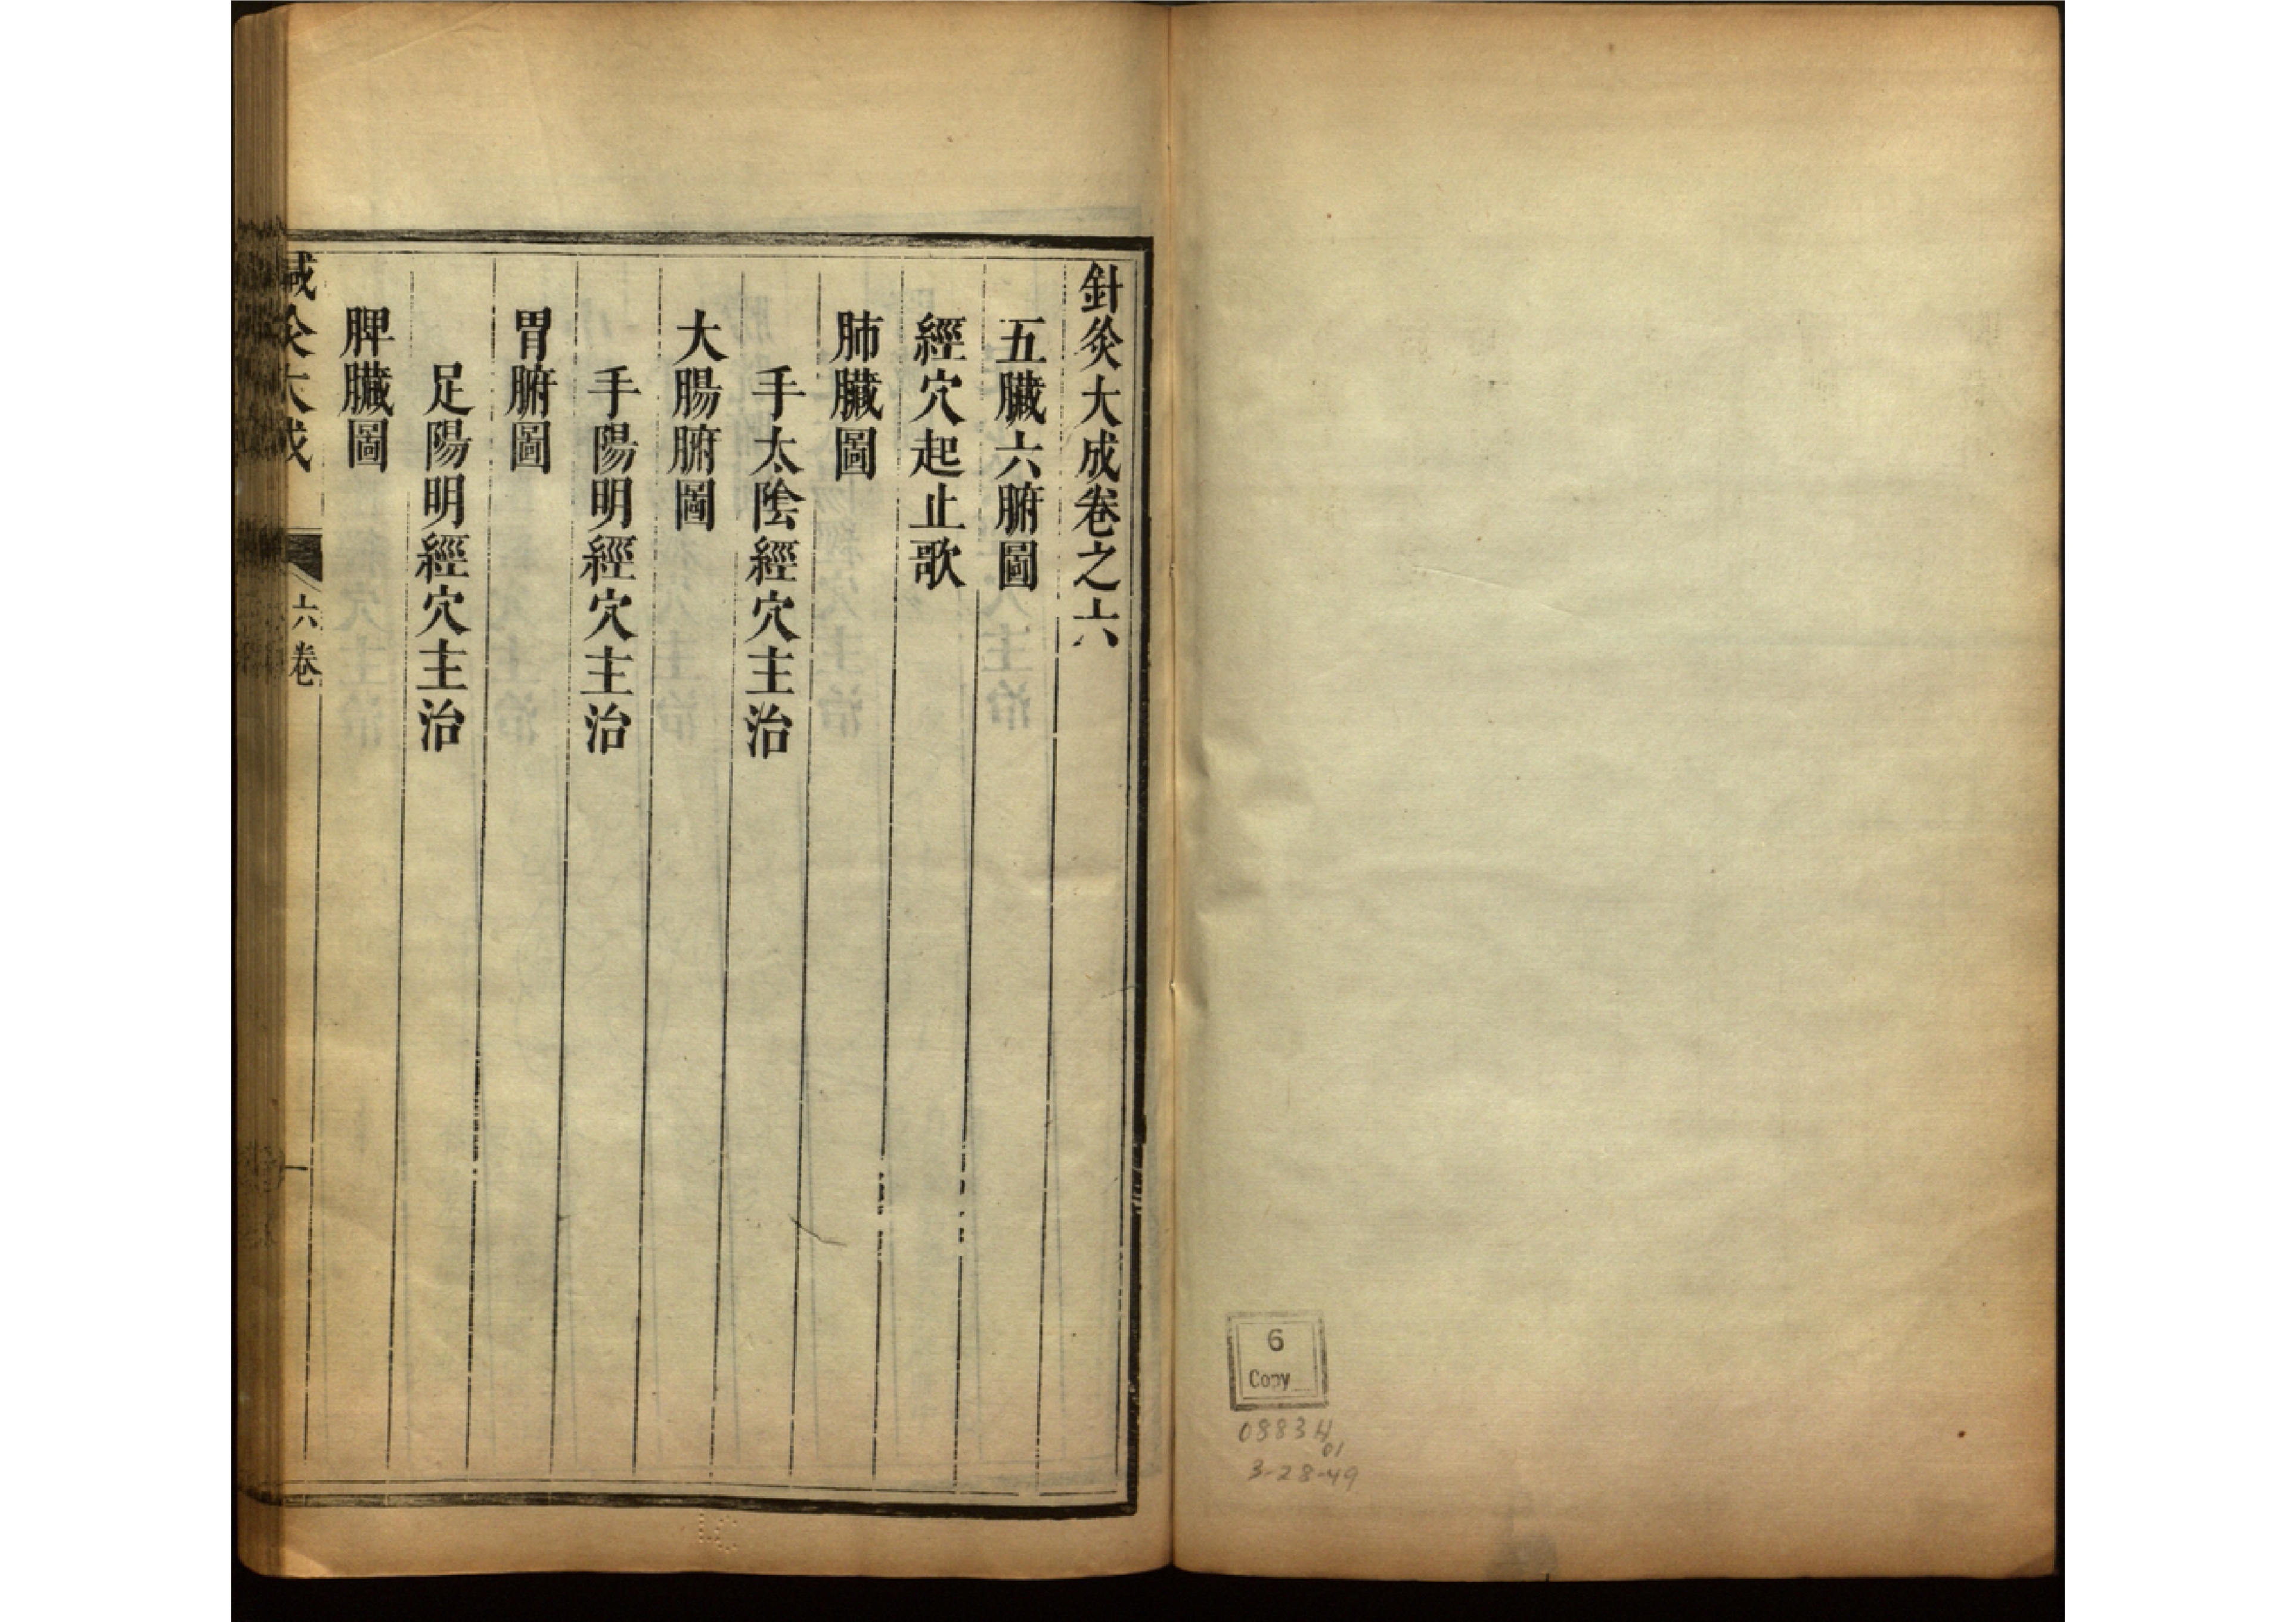 針灸大成卷之六
五臟六腑圖
經穴起止歌
肺臟圖
手太陰經穴主治
大腸腑圖
手陽明經穴主治
胃腑圖
足陽明經穴主治
脾臟圖
鍼灸大成 六卷 一
6
Copy
0883H
01
3-28-49